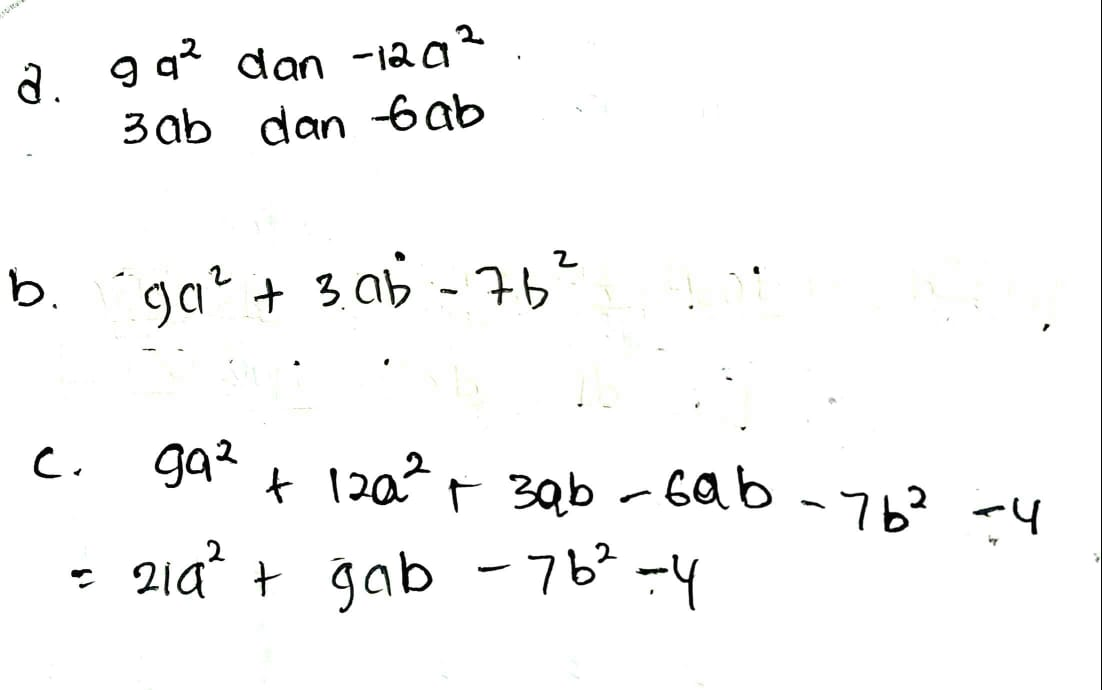 a. 9a² dan -12a².
3ab dan -6ab
b. 9a² + 3ab - 7b²
c. 9a² + 12a² + 3ab - 6ab - 7b² - 4
= 21a² + 9ab - 7b² - 4